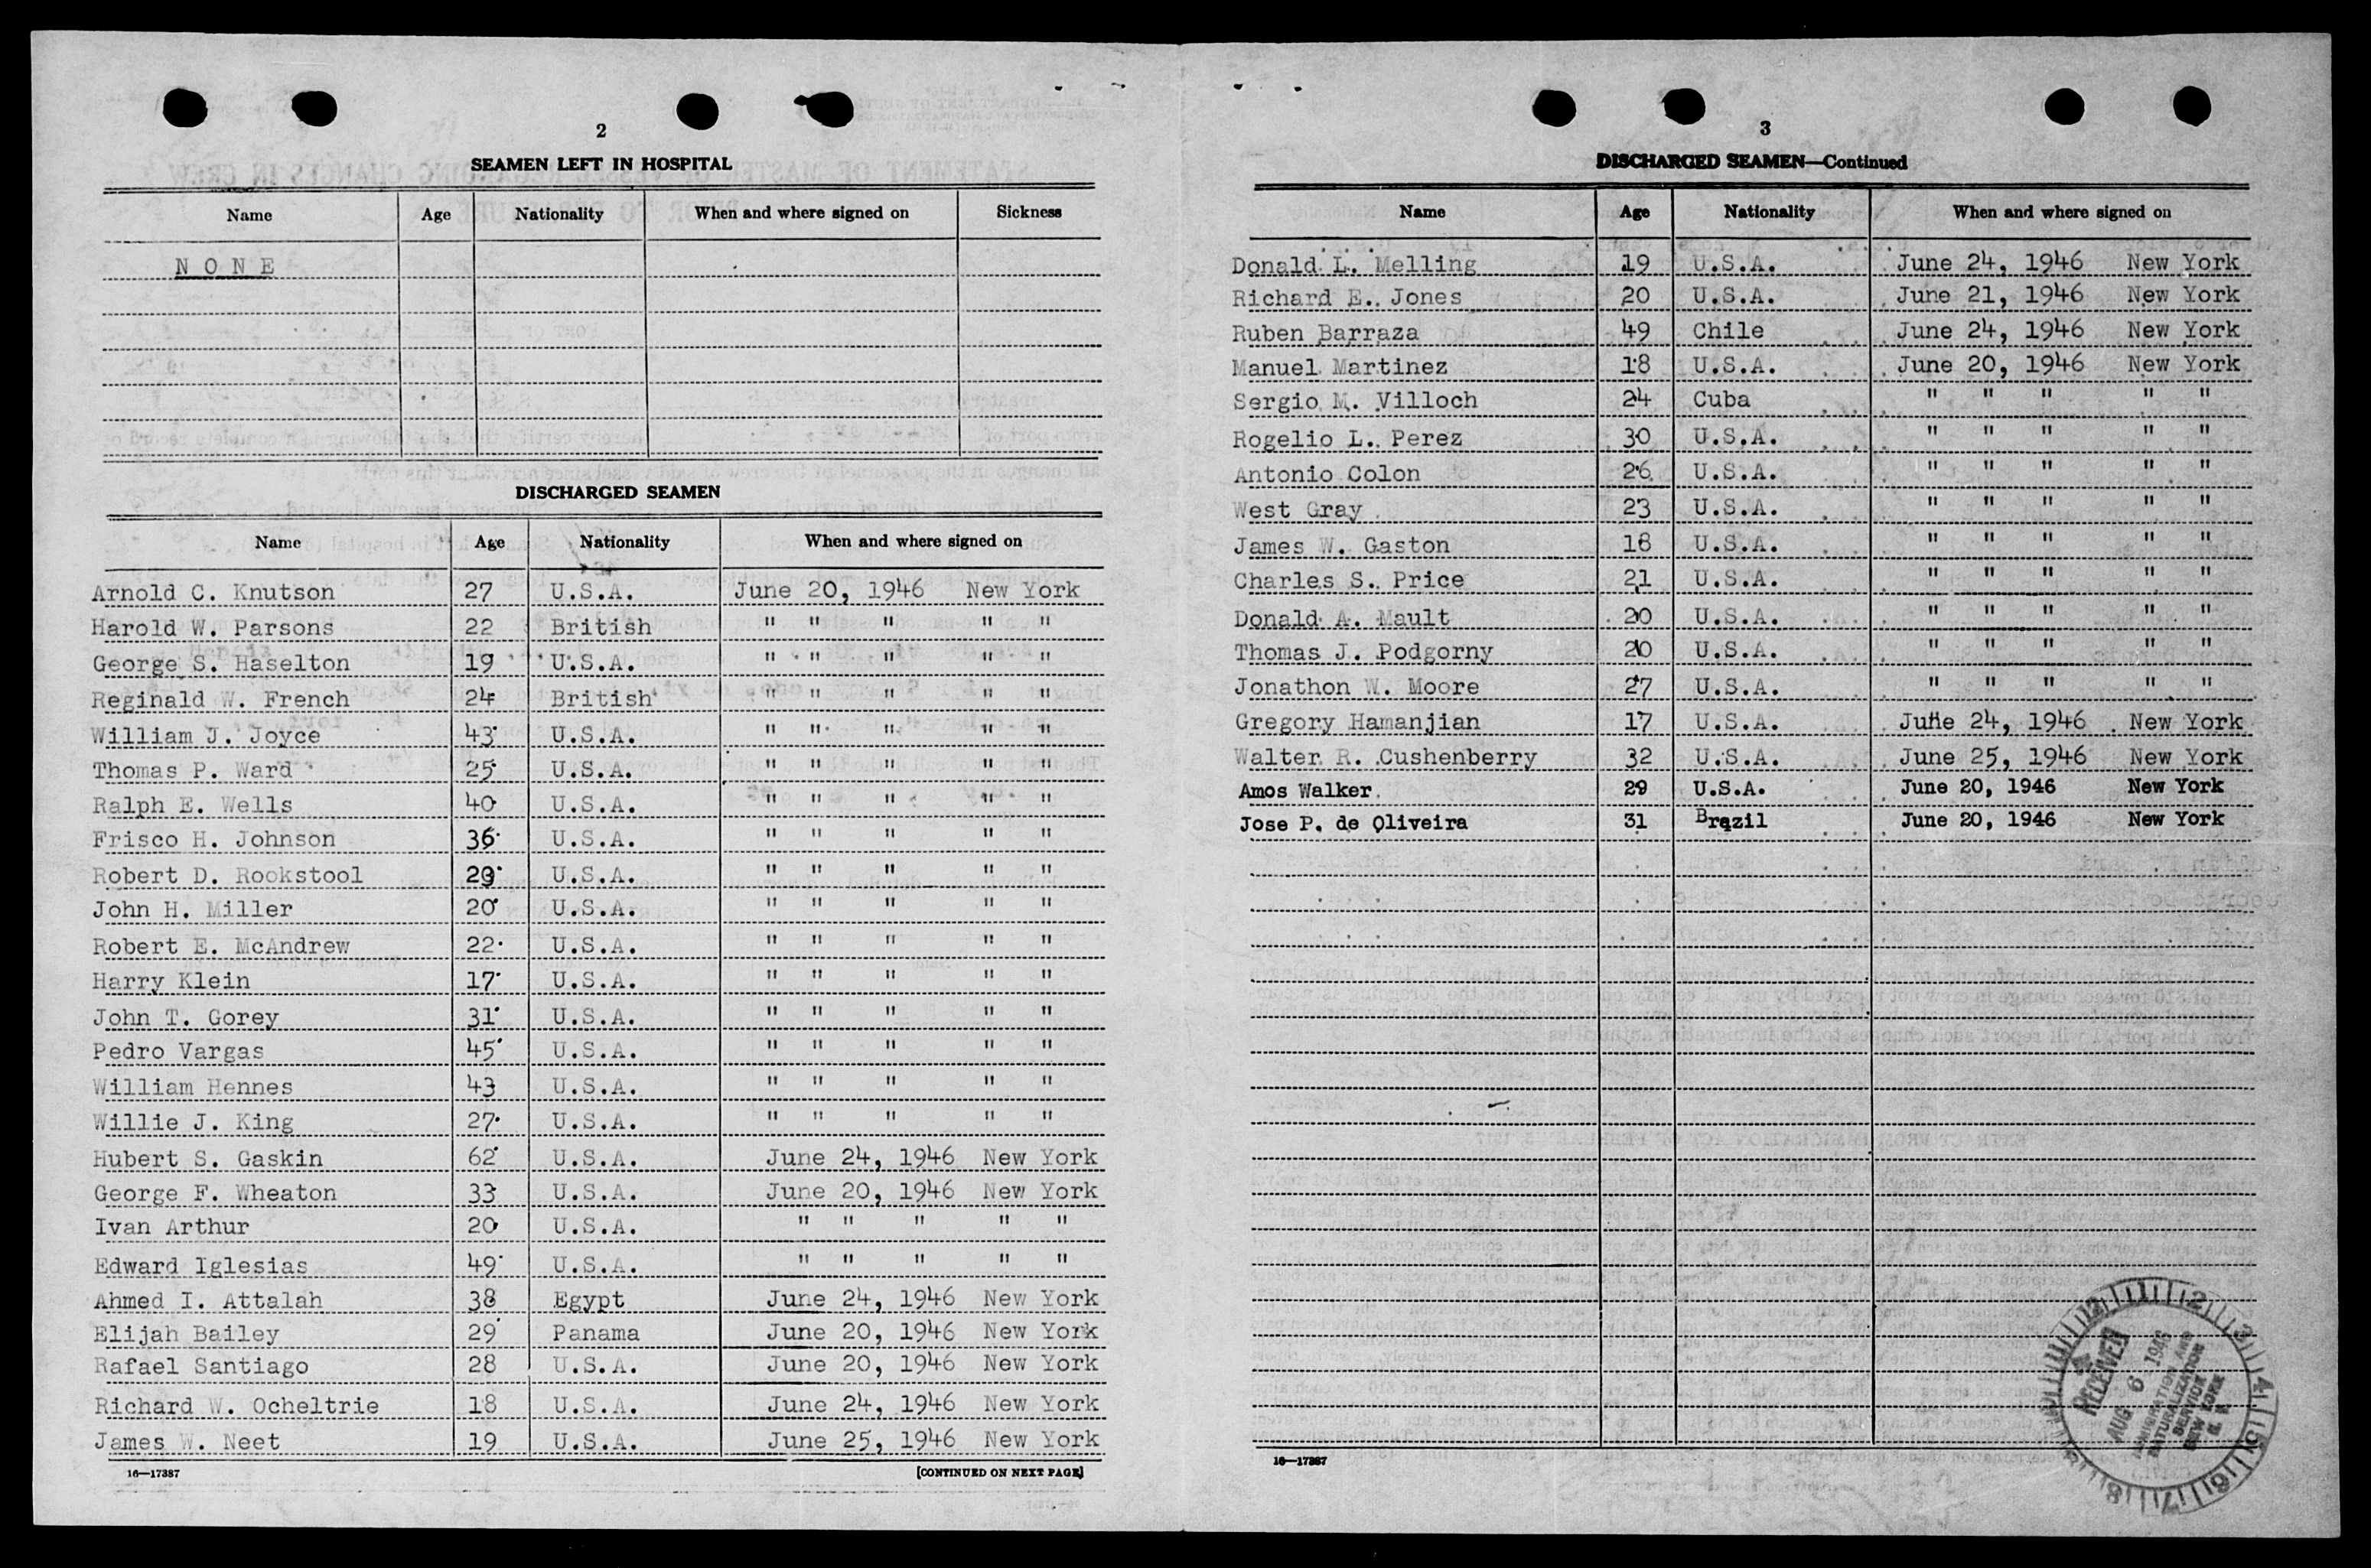 2
SEAMEN LEFT IN HOSPITAL
Name Age Nationality When and where signed on Sickness
N O N E
DISCHARGED SEAMEN
Name Age Nationality When and where signed on
Arnold C. Knutson 27 U.S.A. June 20, 1946 New York
Harold W. Parsons 22 British " " " " "
George S. Haselton 19 U.S.A. " " " " "
Reginald W. French 24 British " " " " "
William J. Joyce 43 U.S.A. " " " " "
Thomas P. Ward 25 U.S.A. " " " " "
Ralph E. Wells 40 U.S.A. " " " " "
Frisco H. Johnson 36 U.S.A. " " " " "
Robert D. Rookstool 29 U.S.A. " " " " "
John H. Miller 20 U.S.A. " " " " "
Robert E. McAndrew 22 U.S.A. " " " " "
Harry Klein 17 U.S.A. " " " " "
John T. Gorey 31 U.S.A. " " " " "
Pedro Vargas 45 U.S.A. " " " " "
William Hennes 43 U.S.A. " " " " "
Willie J. King 27 U.S.A. " " " " "
Hubert S. Gaskin 62 U.S.A. June 24, 1946 New York
George F. Wheaton 33 U.S.A. June 20, 1946 New York
Ivan Arthur 20 U.S.A. " " " " "
Edward Iglesias 49 U.S.A. " " " " "
Ahmed I. Attalah 38 Egypt June 24, 1946 New York
Elijah Bailey 29 Panama June 20, 1946 New York
Rafael Santiago 28 U.S.A. June 20, 1946 New York
Richard W. Ocheltrie 18 U.S.A. June 24, 1946 New York
James W. Neet 19 U.S.A. June 25, 1946 New York
16—17387 [CONTINUED ON NEXT PAGE]
3
DISCHARGED SEAMEN—Continued
Name Age Nationality When and where signed on
Donald L. Melling 19 U.S.A. June 24, 1946 New York
Richard E. Jones 20 U.S.A. June 21, 1946 New York
Ruben Barraza 49 Chile June 24, 1946 New York
Manuel Martinez 18 U.S.A. June 20, 1946 New York
Sergio M. Villoch 24 Cuba " " " " "
Rogelio L. Perez 30 U.S.A. " " " " "
Antonio Colon 26 U.S.A. " " " " "
West Gray 23 U.S.A. " " " " "
James W. Gaston 18 U.S.A. " " " " "
Charles S. Price 21 U.S.A. " " " " "
Donald A. Mault 20 U.S.A. " " " " "
Thomas J. Podgorny 20 U.S.A. " " " " "
Jonathon W. Moore 27 U.S.A. " " " " "
Gregory Hamanjian 17 U.S.A. June 24, 1946 New York
Walter R. Cushenberry 32 U.S.A. June 25, 1946 New York
Amos Walker 29 U.S.A. June 20, 1946 New York
Jose P. de Oliveira 31 Brazil June 20, 1946 New York
16—17387
12 1 2 3 4 5 6 7 8
RECEIVED
AUG 6 1946
IMMIGRATION AND
NATURALIZATION
SERVICE
NEW YORK
N. Y.